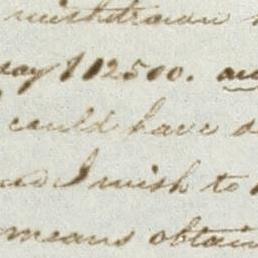 withdrawn
say $12500. an
could have d
and I wish to
means obtain